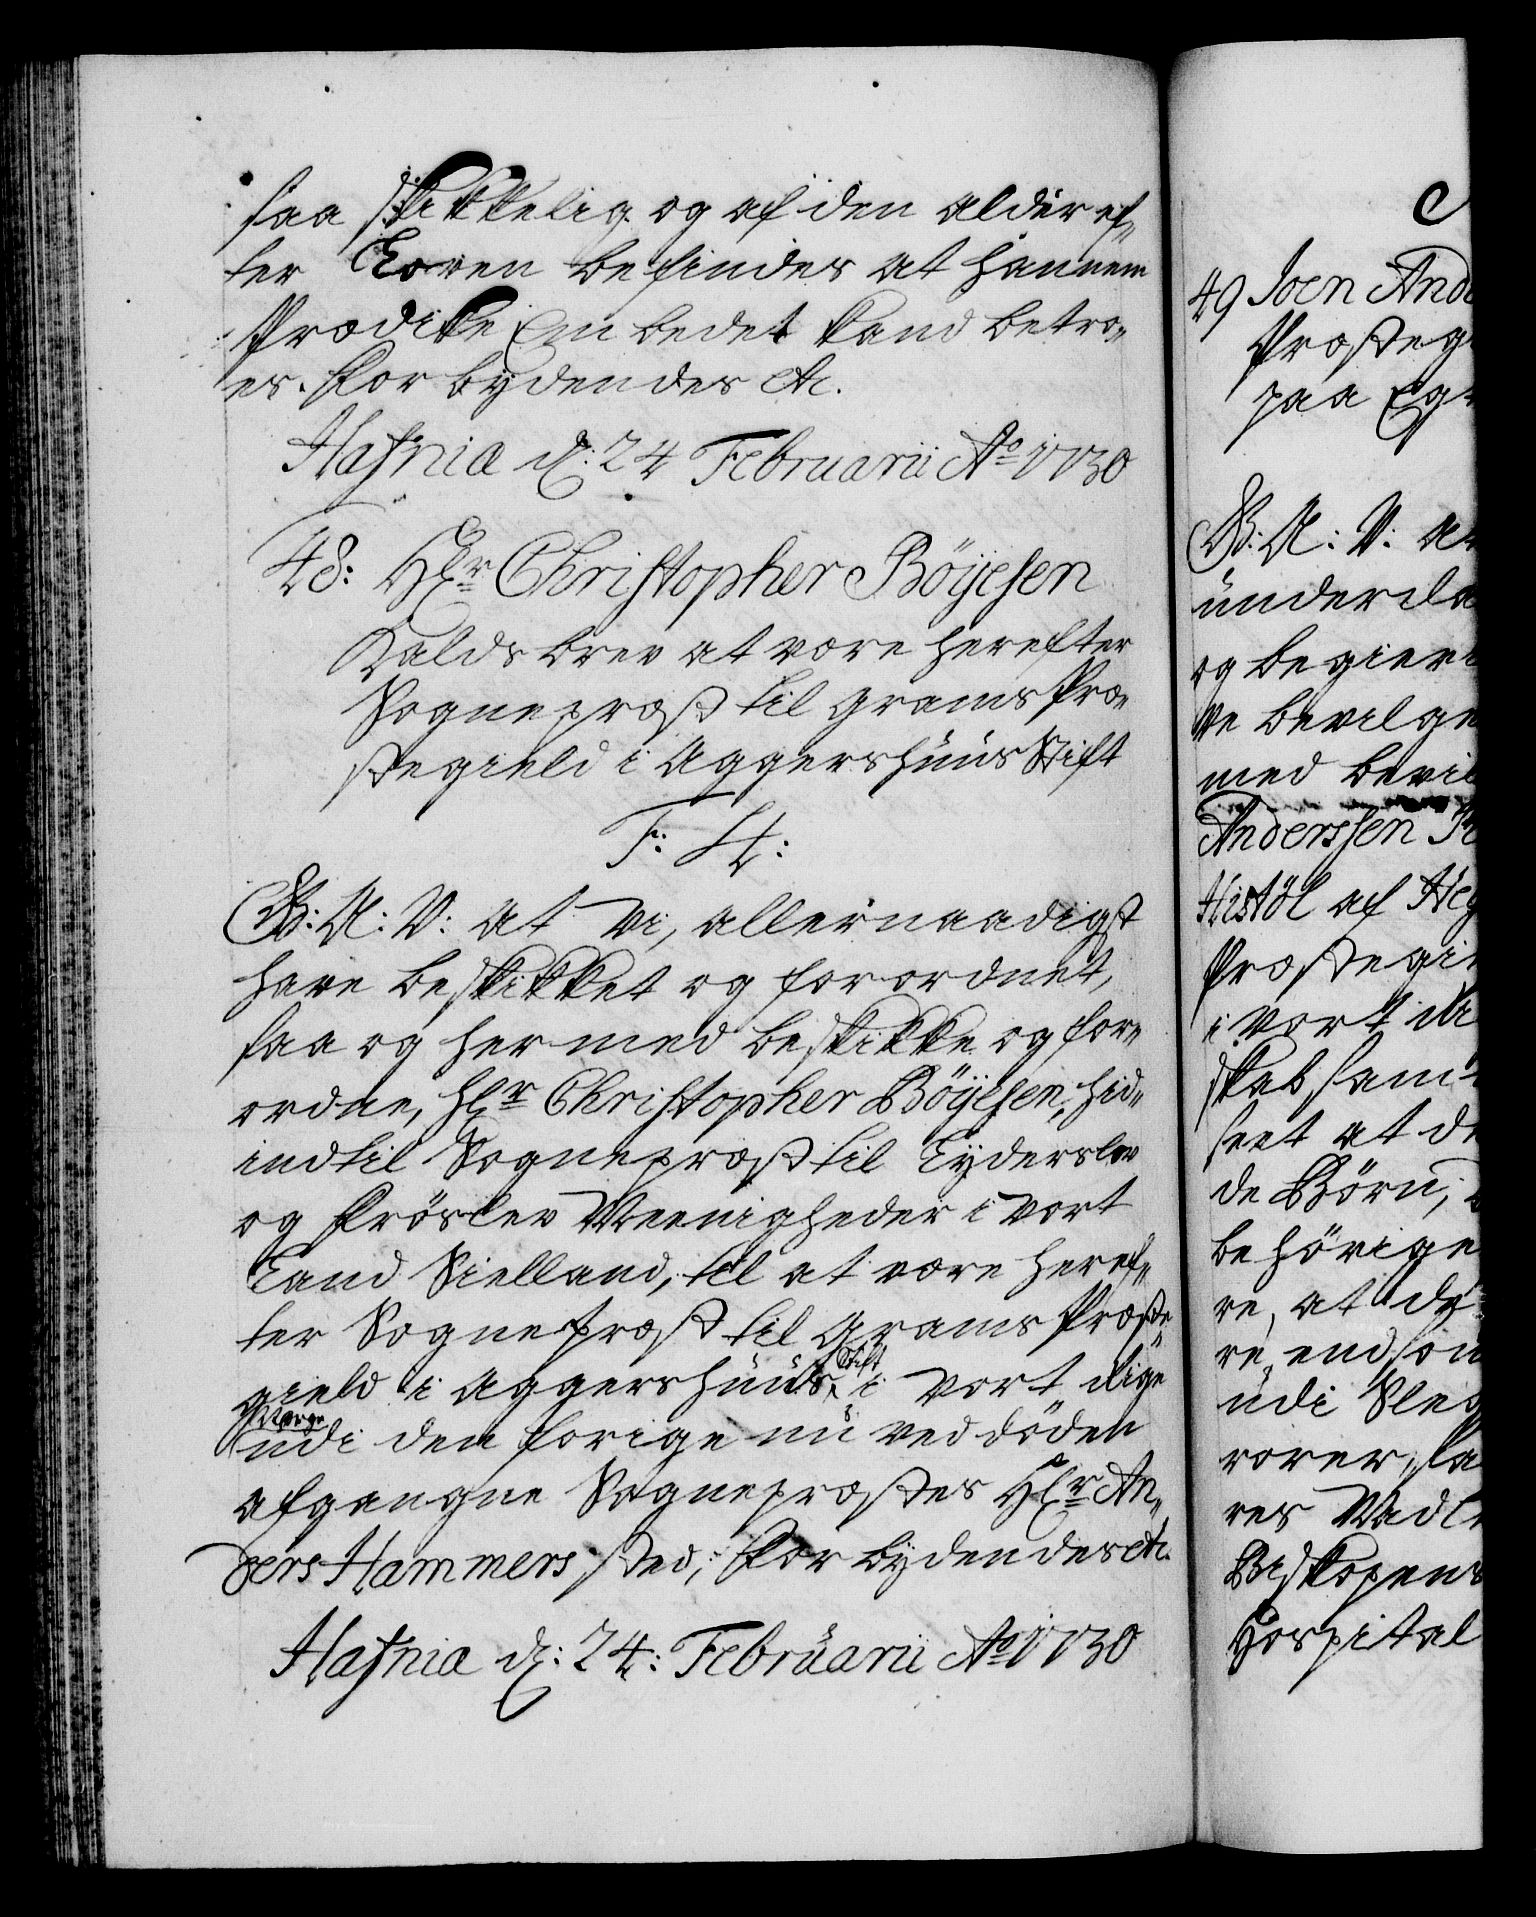 saa skikkelig og af den alder ef-
ter Loven befindes at hannem
Prædike Embedet kand betro-
es. Forbydendes etc.
Hafniæ d: 24 Februarii Ao 1730
48: Hr Christopher Böyesen
Kaldsbrev at være herefter
Sognepræst til Grams Præ-
stegield i Aggershuus Stift
F: 4:
G: A: V: at Vi, allernaadigst
have beskikket og forordnet,
saa og hermed beskikke og for-
ordne, Hr Christopher Böyesen, hid-
indtil Sognepræst til Tyderslev
og Fröslev Meenigheder i Vort
Land Sielland, til at være heref-
ter Sognepræst til Grams Præste-
gield i Aggershuus Stift i Vort Rige
Norge udi den forige nu ved döden
afgangne Sognepræstes Hr An-
ders Hammers sted; Forbydendes etc.
Hafniæ d: 24: Februarii Ao 1730
49 Joen Ande
Præsteg
paa Eg
G: A: V: at
underda
og begier
ve bevilge
med bevil
Anderssen
Histöl af Heg
Præstegi
i Vort
skab, sam
seet at d
de Börn,
behörige
re, at de
re, end son
udi Sleg
rorer, sa
res Mad
Biskopens
Hospital